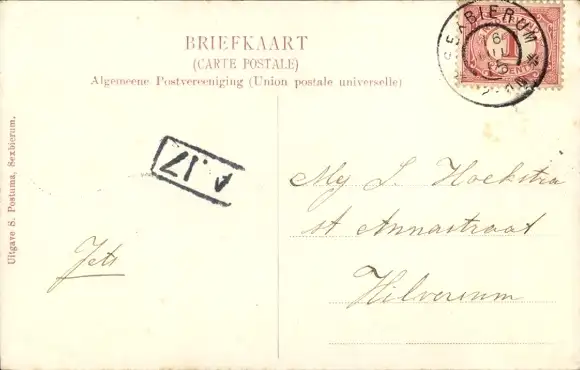 BRIEFKAART
(CARTE POSTALE)
Algemeene Postvereeniging (Union postale universelle)
SEXBIERUM
1
CENT
A.17
Mej S. Hoekstra
st Annastraat
Hilversum
Jets
Uitgave S. Postuma, Sexbierum.